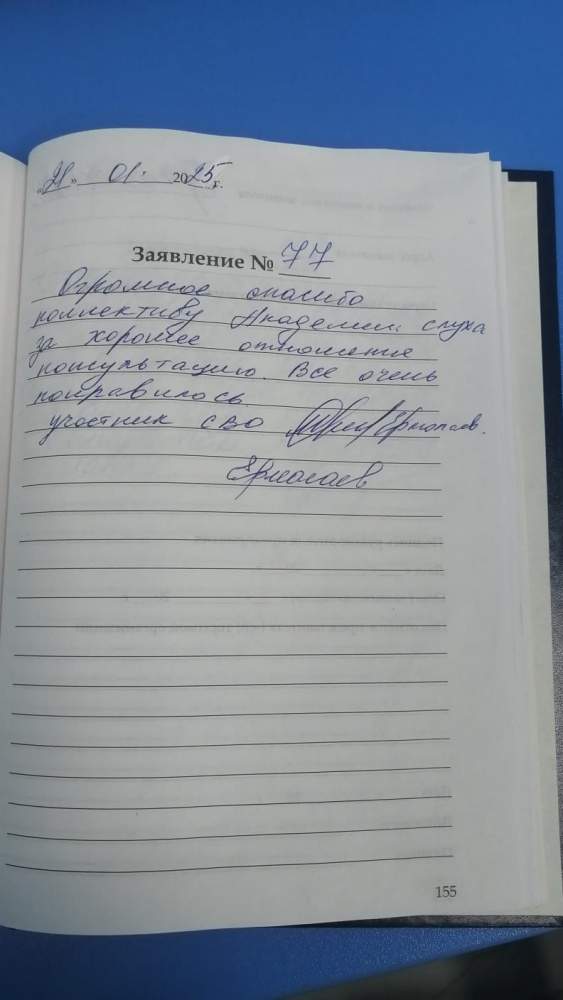 «21» 01. 2025 г.
Заявление № 77
Огромное спасибо
коллективу Академии слуха
за хорошее отношение
консультацию. Все очень
понравилось
участник сво
155